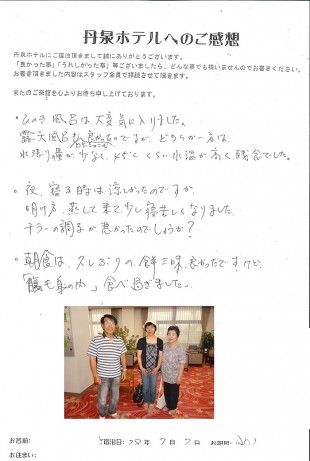 丹泉ホテルへのご感想
丹泉ホテルにご宿泊頂きまして誠にありがとうございます。
「良かった事」「うれしかった事」等ございましたら、どんな事でも構いませんのでお書きください。
お書き頂きました内容はスタッフ全員で拝読させて頂きます。
またのご来館を心よりお待ち申し上げております。
風呂は大変気に入りました。
露天風呂も良かったのですが、どちらか一方は、
水張り量が少なく、くらい水温が高く、残念でした。
夜、寝る時は涼しかったのですが、
明け方、蒸して来て、少し寝苦しくなりました。
チラーの調子が悪かったのでしょうか?
朝食は、久しぶりの、餅三昧、良かったですけど、
「腹も身の内」食べ過ぎました。
お名前: ご宿泊日: 年 7月 7日 お部屋:
お住まい: